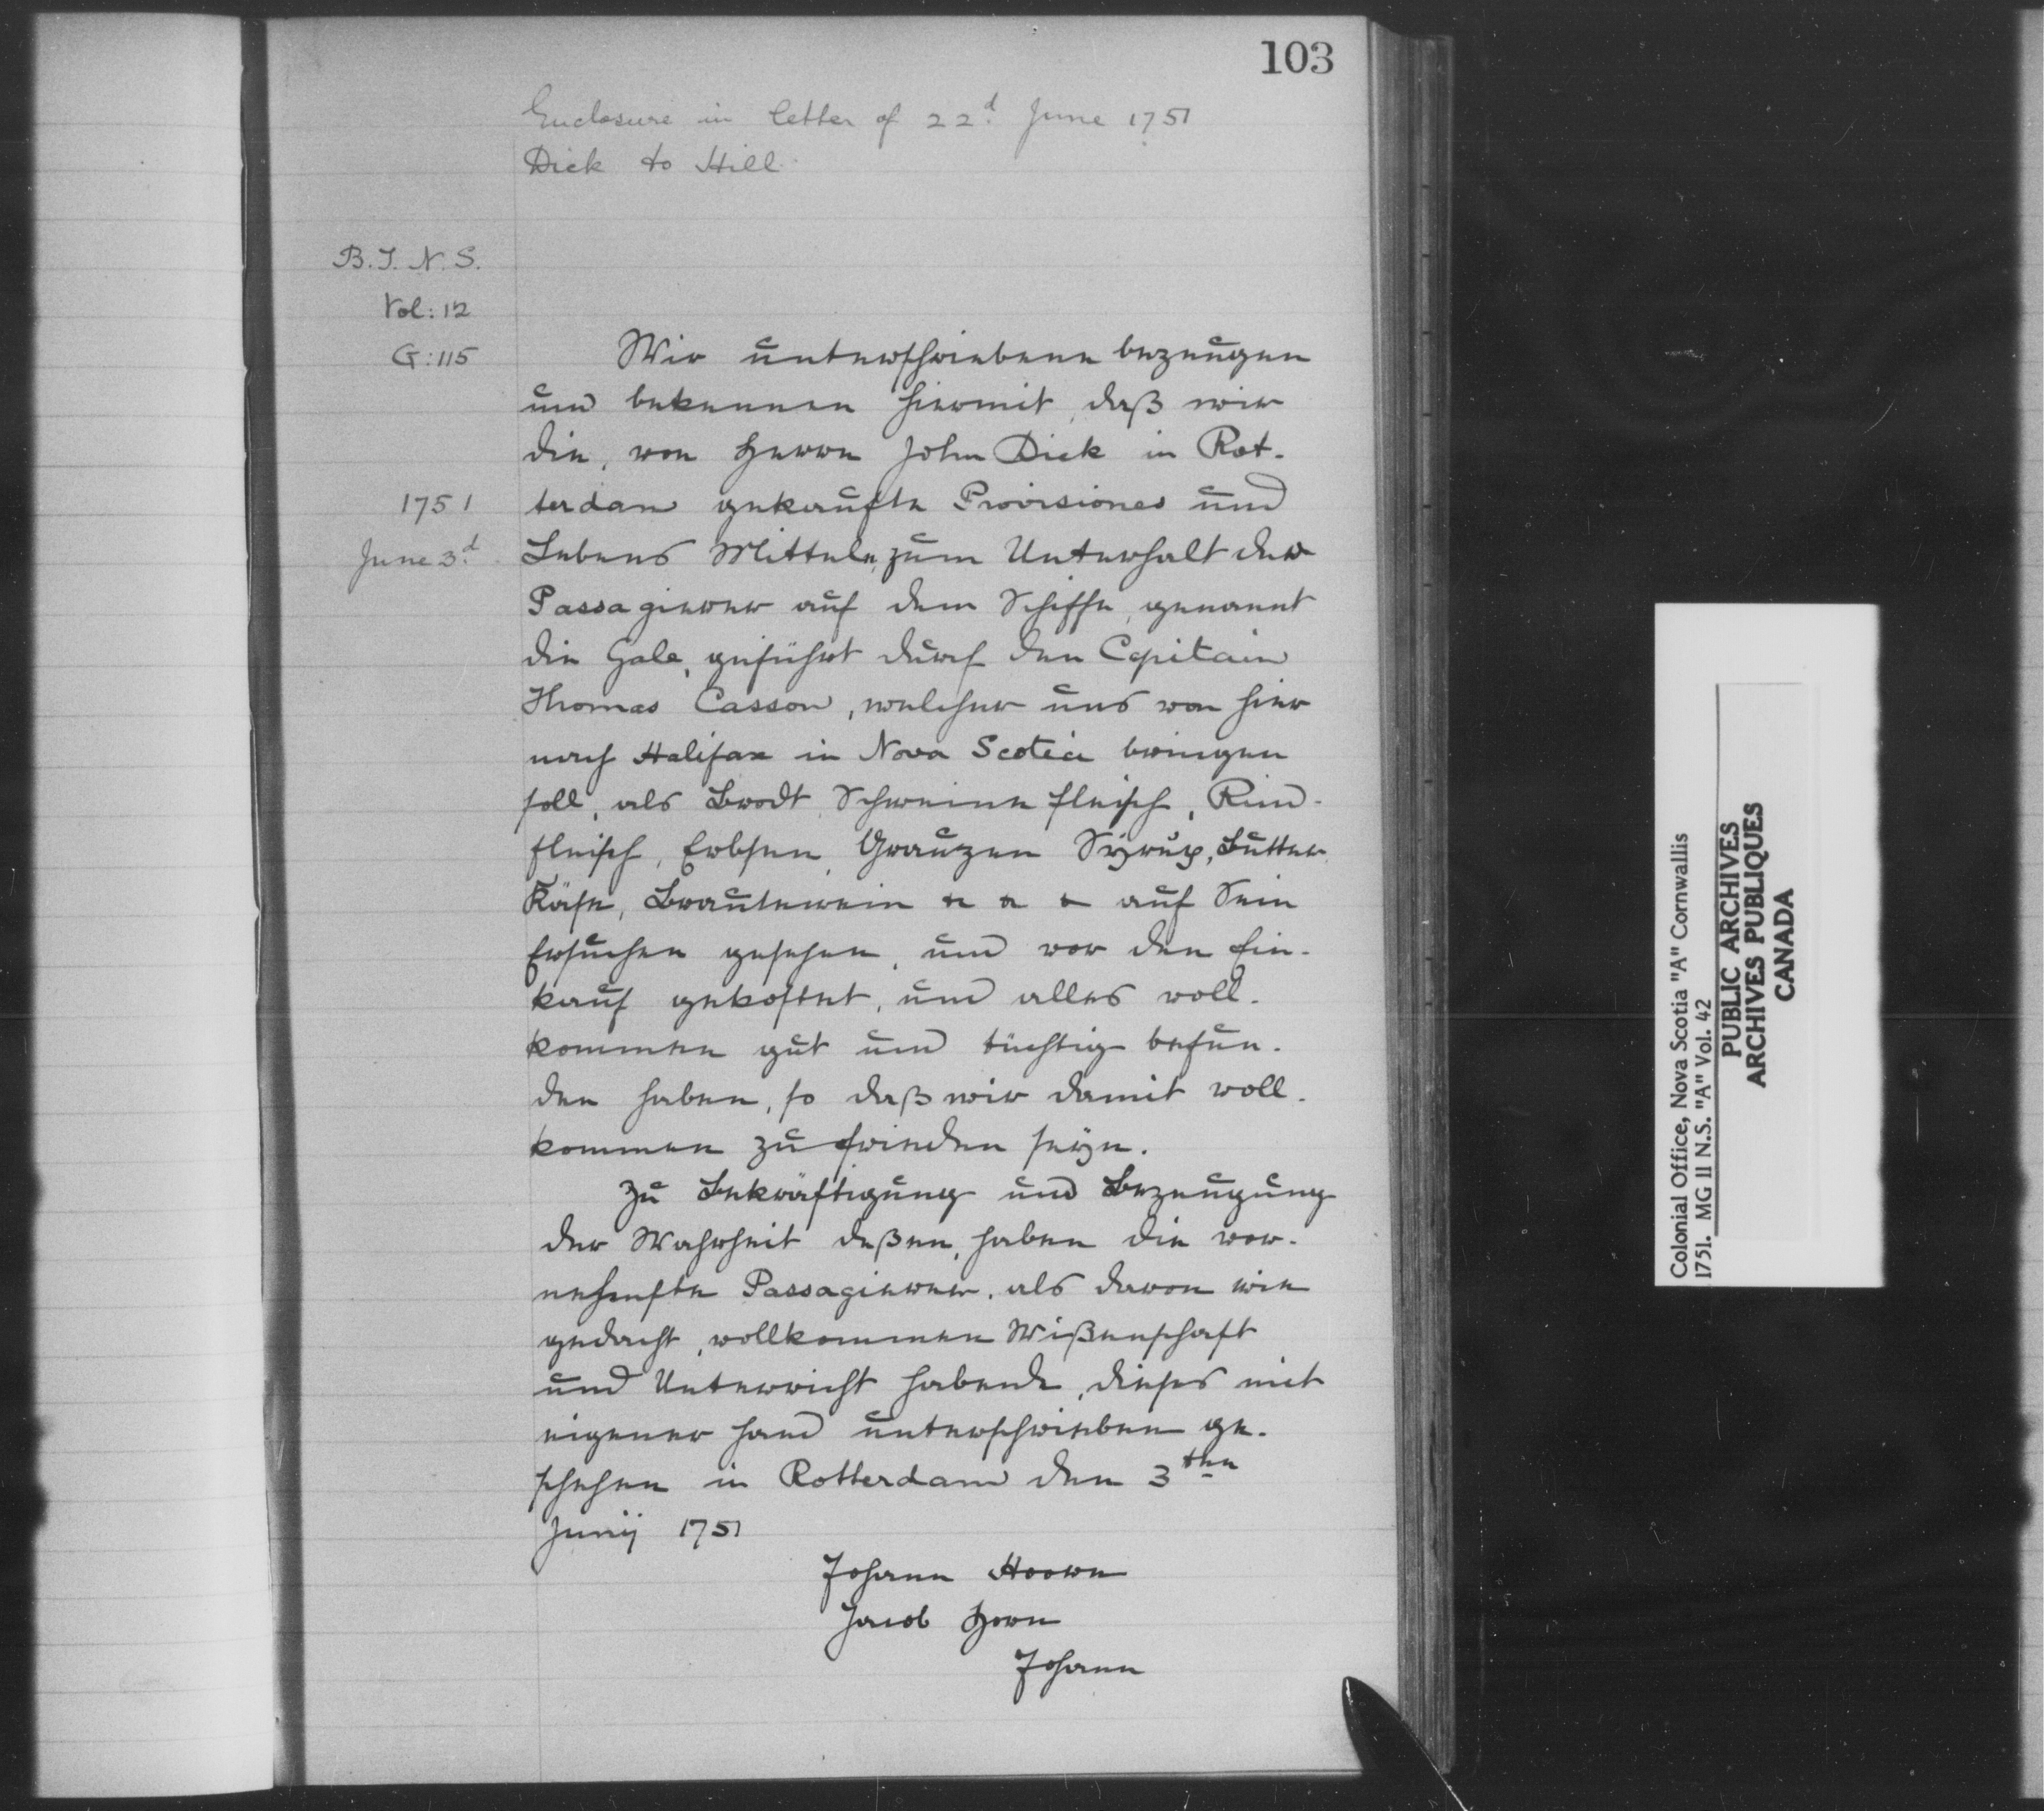 103
Enclosure in letter of 22d. June 1751
Dick to Hill.
B.T. N. S.
Vol: 12
G: 115
1751
June 3d.
Wir unterschriebene bezeugen
und bekennen hiermit, daß wir
die, von Herrn John Dick in Rot-
terdam gekaufte Provisiones und
Lebens Mittele, zum Unterhalt der
Passagierer auf dem Schiffe, genannt
die Gale, geführt durch den Capitain
Thomas Casson, welcher uns von hier
nach Halifax in Nova Scotia bringen
soll, als Brodt, Schweine fleisch, Rind-
fleisch, Erbsen, Grauzen Syrup, Butter,
Käse, Brautewein auf Sein
Ersuchen gesehen, und vor den Ein-
kauf gekostet, und alles voll-
kommen gut und tüchtig befun-
den haben, so daß wir damit voll-
kommen zu frieden seÿn.
Zu Bekräftigung und Bezeugung
der Wahrheit deßen, haben die vor-
Passagierer, als davon wie
gedacht, vollkommen Wißenschaft
und Unterricht habende, dieses mit
eigener hand unterschrieben ge-
schehen in Rotterdam den 3ten
Junij 1751
Johann Hoorn
Jacob Horn
Johann
Colonial Office, Nova Scotia "A" Cornwallis
1751. MG 11 N.S. "A" Vol. 42
PUBLIC ARCHIVES
ARCHIVES PUBLIQUES
CANADA